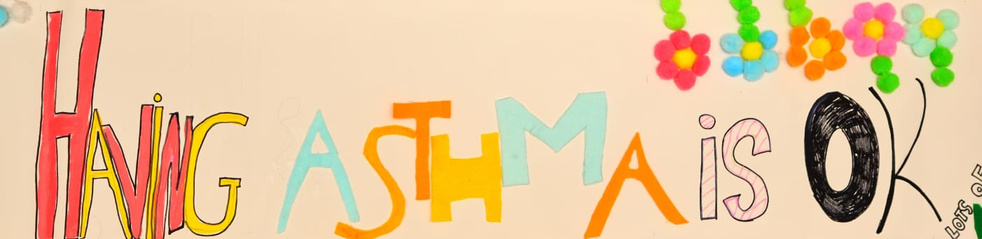 HAViNG ASTHMA is OK
LOTS OF